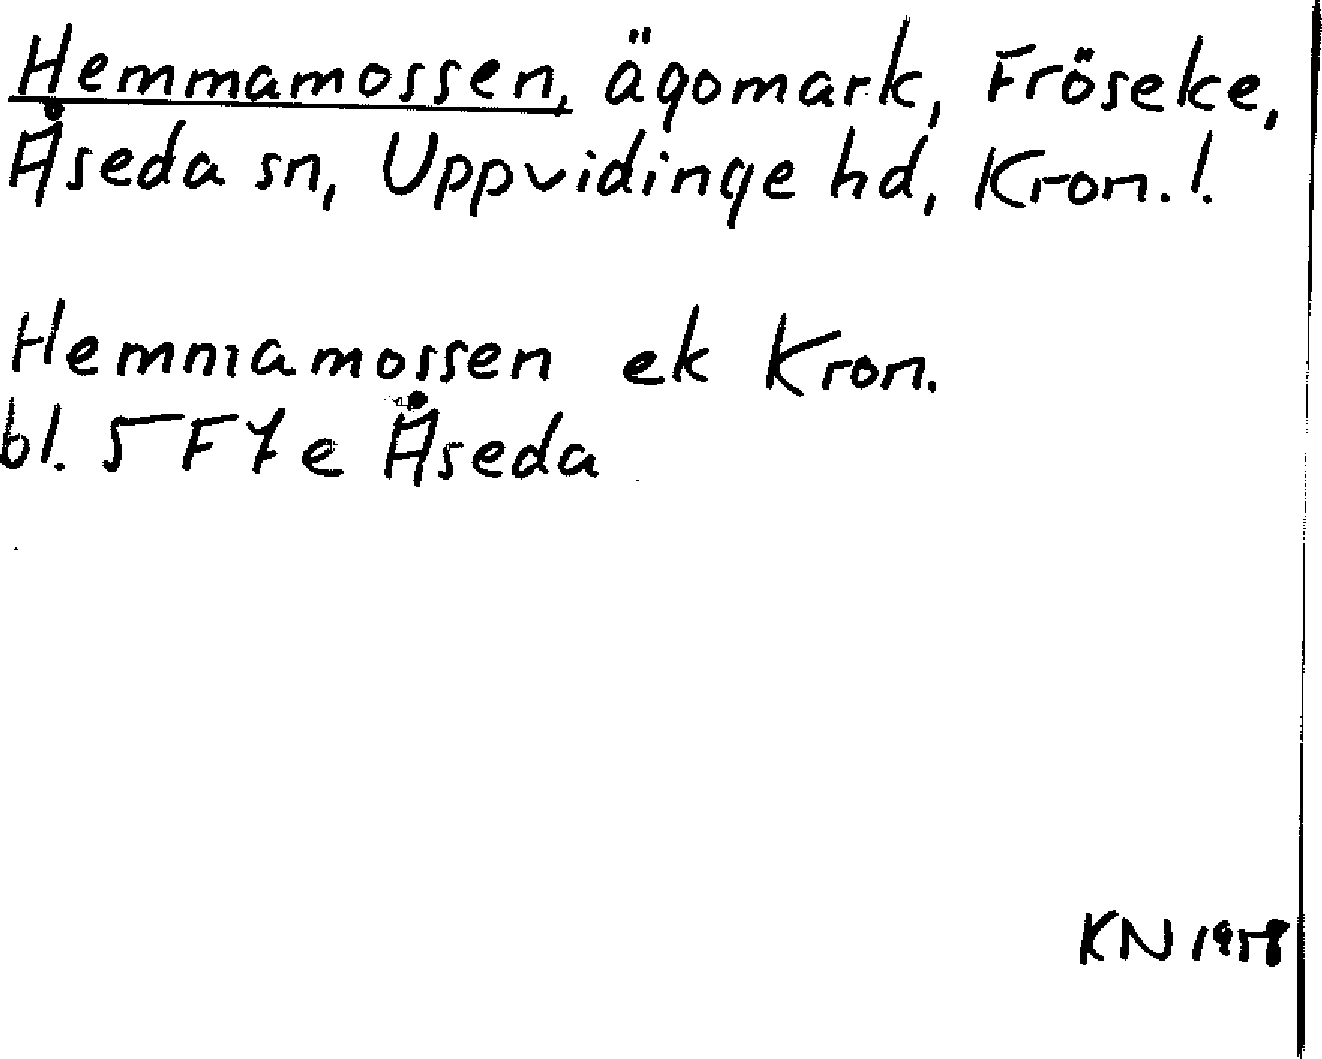 Hemmamossen, ägomark, Fröseke,
Åseda sn, Uppvidinge hd, Kron.l.
Hemmamossen ek Kron.
bl. 5 F 7 e Åseda
KN 1958